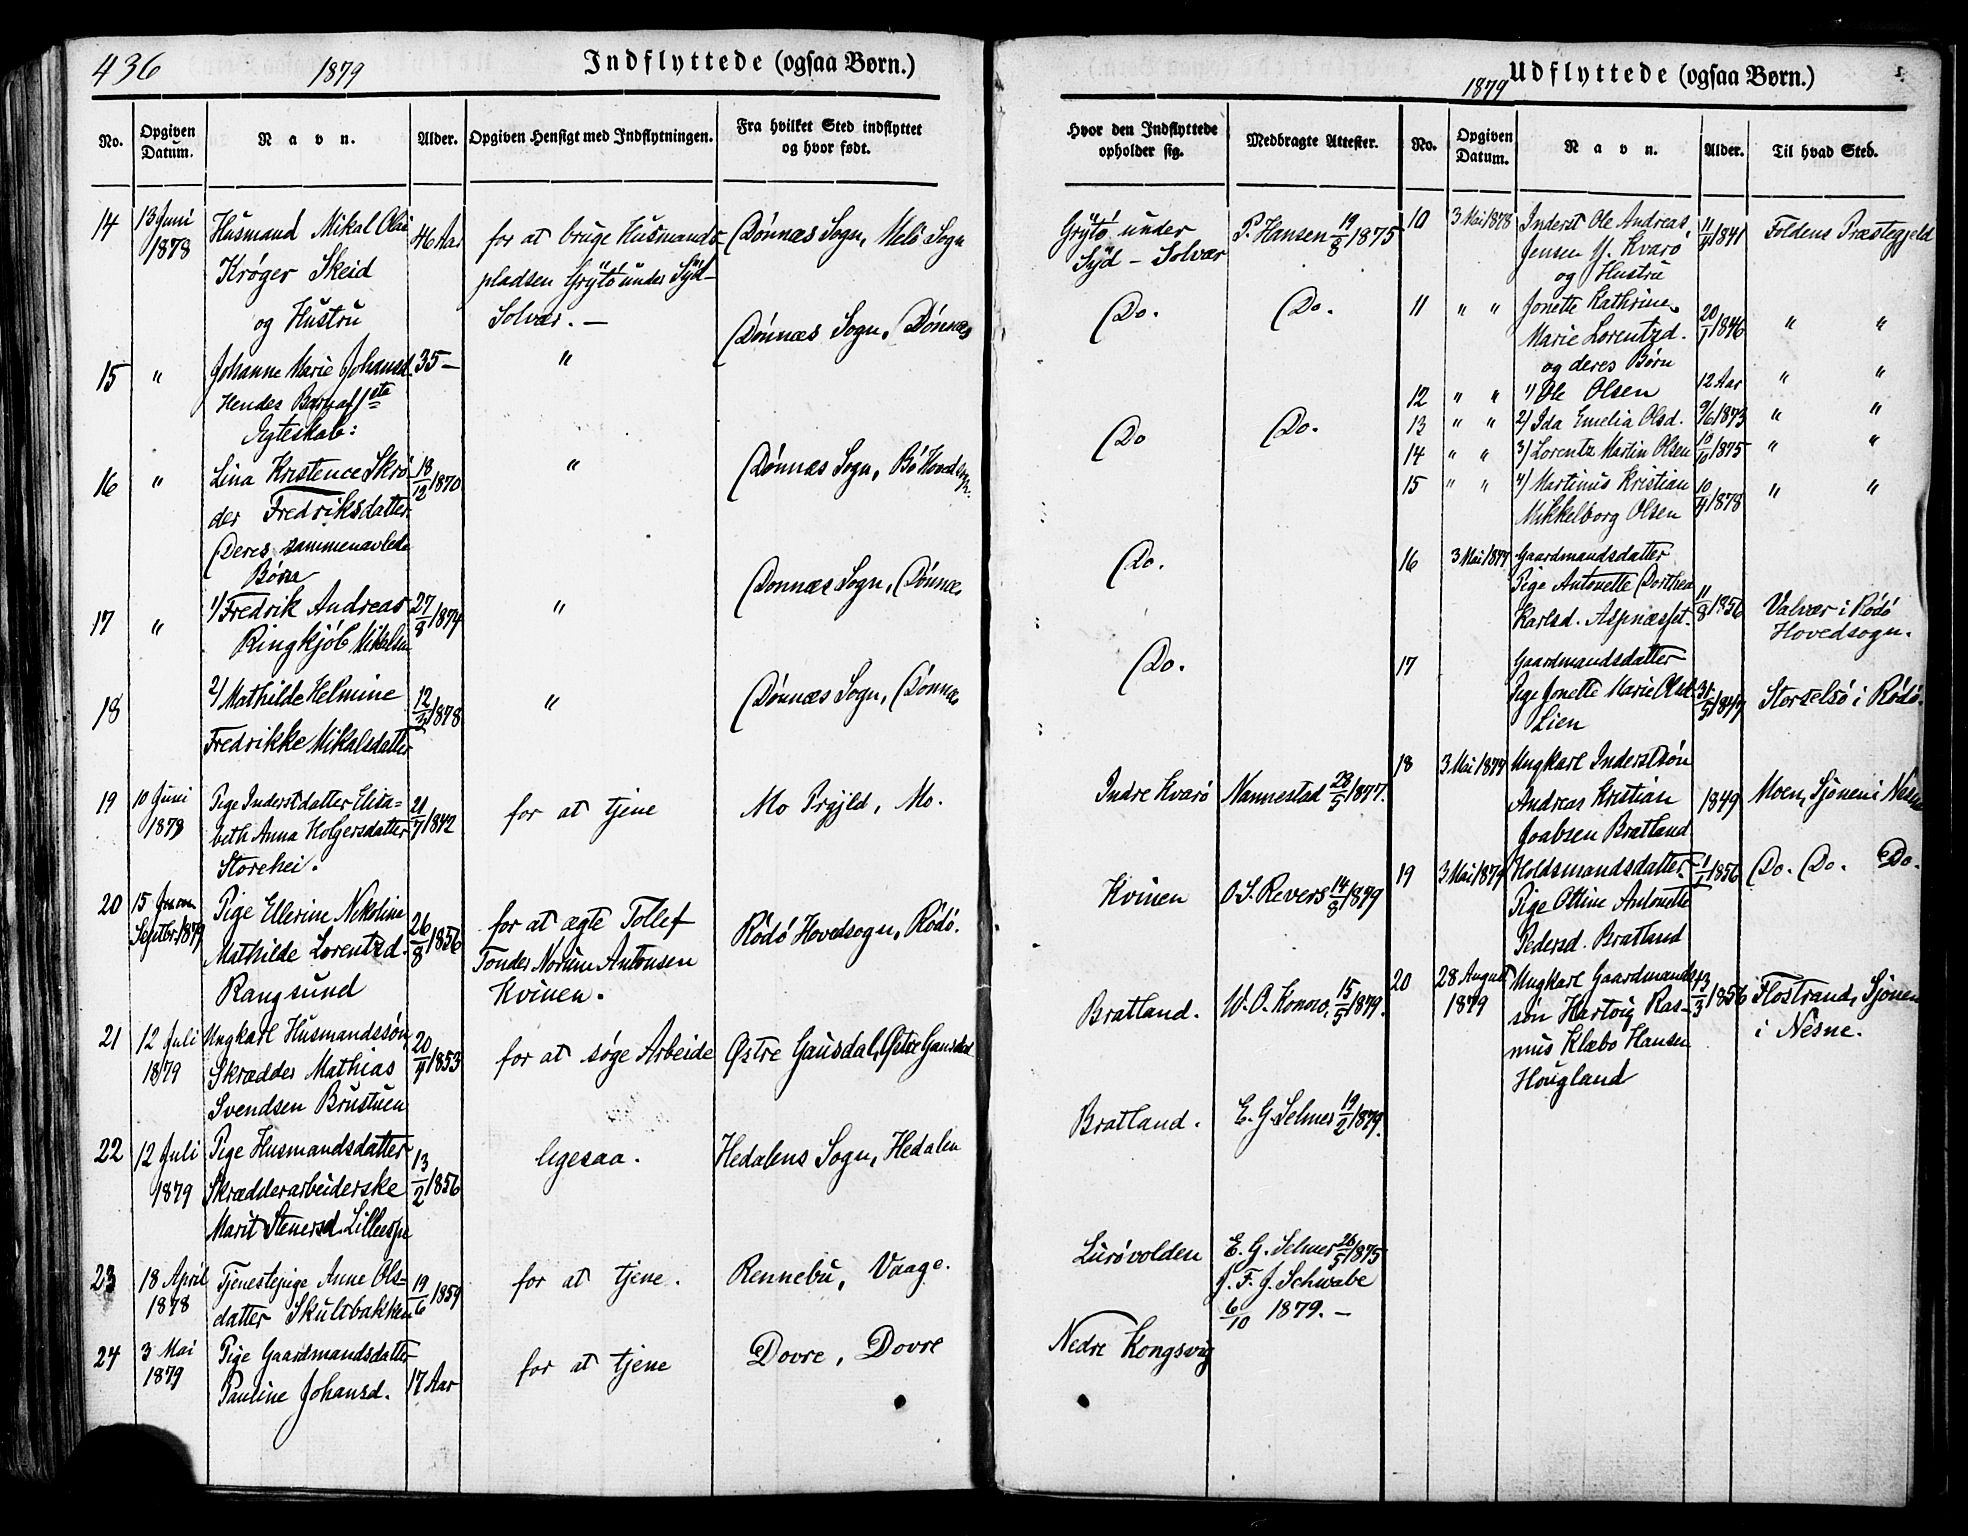 436
1879
Indflyttede (ogsaa Børn.)
No.
Opgiven Datum.
Navn.
Alder.
Opgiven Hensigt med Indflytningen.
Fra hvilket Sted indflyttet
og hvor født.
14
13 Juni
1878
Husmand Mikal Olai
Krøger Skeid
og Hustru
46 Aar
for at bruge Husmands-
pladsen Grÿtö under Sÿd-
Solvær. —
Dónnæs Sogn, Melö Sogn
15
"
Johanne Marie Johansd.
35 —
"
Dónnæs Sogn, Dónnæs
Hendes Barn af 1ste
Ægteskab:
16
"
Lina Kristence Skrö
der Fredriksdatter
18/12 1870
"
Dónnæs Sogn, Bö Hovedsogn.
Deres sammenavlede
Børn
17
"
1) Fredrik Andreas
Ringkjöb Mikalsen
27/8 1874
"
Donnæs Sogn, Dónnæs
18
2) Mathilde Helmine
Fredrikke Mikalsdatter
12/3 1878
"
Dónnæs Sogn, Dónnæs
19
10 Juni
1878
Pige Inderstdatter Elisa-
beth Anna Holgersdatter
Storehei.
21/7 1842
for at tjene
Mo Prgjld, Mo.
20
15
Septbr. 1879
Pige Ellerine Nikoline
Mathilde Lorentzd.
Rangsund
26/8 1856
for at ægte Tollef
Tonder Norum Antonsen
Kvinen.
Rödö Hovedsogn, Rödö.
21
12 Juli
1879
Ungkarl Husmandssøn,
Skrædder Mathias
Svendsen Brustuen
20/4 1853
for at søge Arbeide
Østre Gausdal, Østre Gausdal
22
12 Juli
1879
Pige Husmandsdatter
Skrædderarbeiderske
Marit Stenersd.
13/2 1856
ligesaa.
Hedalens Sogn, Hedalen
23
18 April
1878
Tjenestepige Anne Ols-
datter Skultbakken
19/6 1859
for at tjene.
Rennebu, Vaage.
24
3 Mai
1879
Pige Gaardmandsdatter
Pauline Johansd.
17 Aar
for at tjene
Dovre, Dovre
1879
Udflyttede (ogsaa Børn.)
Hvor den Indflyttede
opholder sig.
Medbragte Attester.
No.
Opgiven Datum.
Navn.
Alder.
Til hvad Sted.
Grÿtö under
Sÿd - Solvær
P. Hansen 19/8 1875
Do.
Do.
Do
Do.
Do.
Do.
Indre Kvarö
Nannestad 28/5 1877.
Kvinen
O. S. Revers 14/8 1879
Bratland.
W. O. 15/5 1879.
Bratland.
E. G. Selmer 19/2 1879.
Lurövolden
E. G. Selmer 26/5 1875
J. F. J. Schwabe
6/10 1879. —
Nedre Kongsvig
10
3 Mai 1878
Inderst Ole Andreas
Jensen Y. Kvarö
og Hustru
11/4 1841
Foldens Præstegjeld
11
" "
Jonette Kathrine
Marie Lorentzd.
og deres Børn
20/1 1846
" "
12
" "
1) Ole Olsen
12 Aar
" "
13
" "
2) Ida Emelia Olsd.
9/6 1873
" "
14
" "
3) Lorentz Martin Olsen
10/10 1875
" "
15
" "
4) Martinus Kristian
Mikkelborg Olsen
10/4 1878
" "
16
3 Mai 1877
Gaardmandsdatter
Pige Antonette Dorthea
Karlsd. Aspnæsset.
11/8 1856
Valvær i Rödö
Hovedsogn.
17
Gaardmandsdatter
Pige Jonette Marie Olsd
Lien
31/5 1847
Storselsö i Rödö.
18
3 Mai 1879
Ungkarl Inderstsön
Andreas Kristian
Joabsen Bratland
1849
Moen, Sjönen i Nesne
19
3 Mai 1879
Holdsmandsdatter
Pige Ottine Antonette
Pedersd. Bratland
1/1 1856
Do. Do. Do.
20
28 August
1879
Ungkarl Gaardmands
sön Hartvig Ras-
mus Klæbo Hansen
Hougland
13/3 1856
Flostrand, Sjönen
i Nesne.